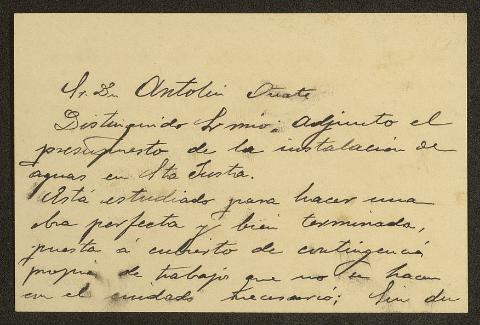 Sr. Dn Antolin
Distinguido Sr mio; adjunto el
presupuesto de la instalación de
aguas en Sta Justa.
Está estudiado para hacer una
obra perfecta y bien terminada,
puesta á cubierto de contingencia
propia de trabajos que no se hacen
con el cuidado necesario; Sin du